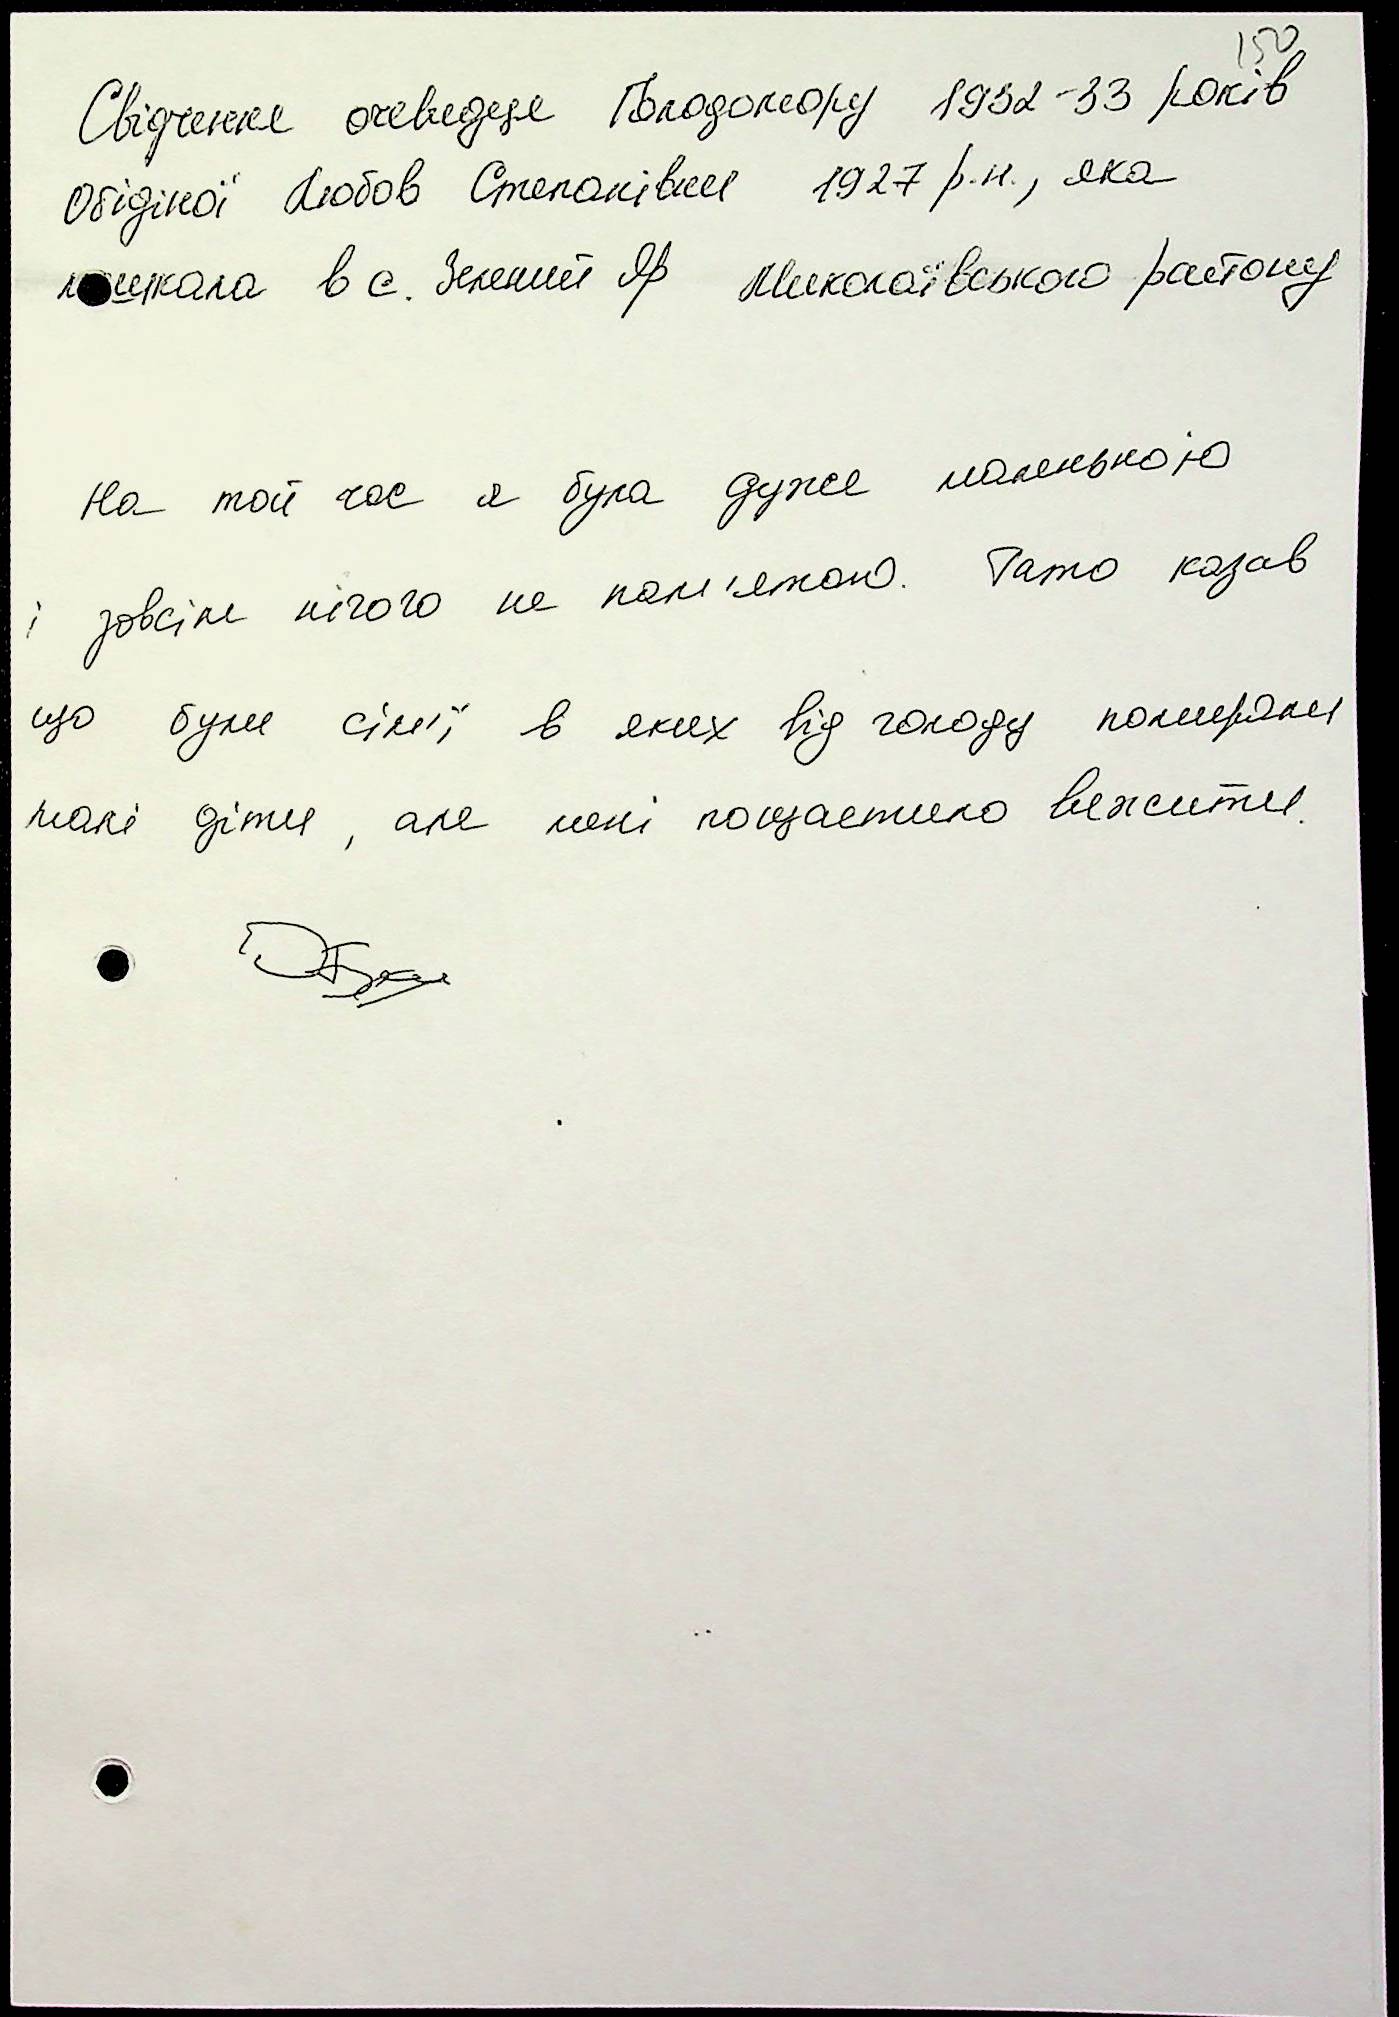 150
Свідчення очевидця Голодомору 1932-33 років
Обідіної Любов Степанівни 1927 р.н., яка
мешкала в с. Зелений Яр Миколаївського району
На той час я була дуже маленькою
і зовсім нічого не пам'ятаю. Тато казав
що були сім'ї, в яких від голоду помирали
малі діти, але мені пощастило вижити.